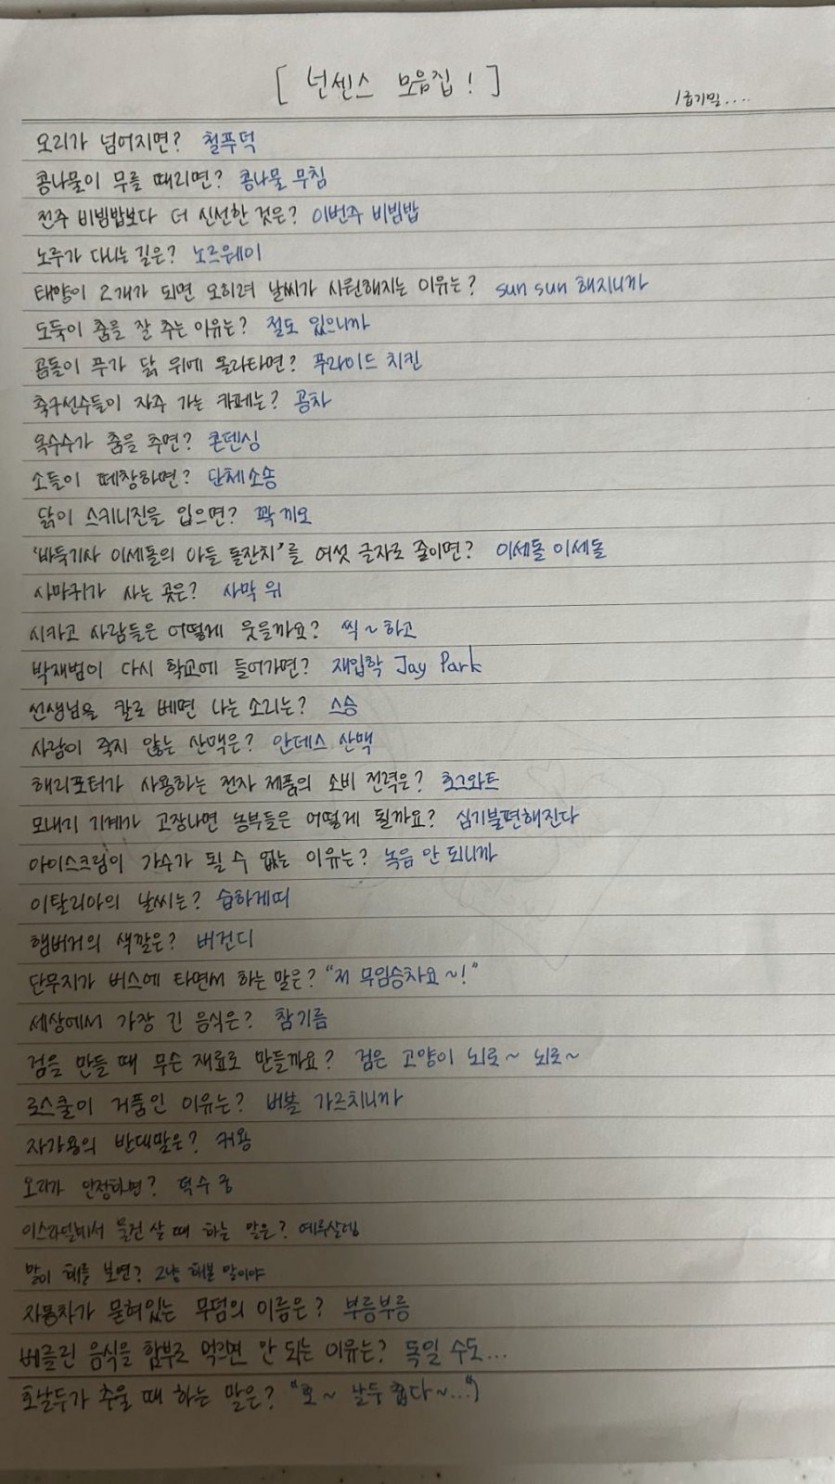 [ 넌센스 모음집 ! ]
1급기밀....
오리가 넘어지면? 철푸덕
콩나물이 무를 때리면? 콩나물 무침
전주 비빔밥보다 더 신선한 것은? 이번주 비빔밥
노루가 다니는 길은? 노르웨이
태양이 2개가 되면 오히려 날씨가 시원해지는 이유는? sun sun 해지니까
도둑이 춤을 잘 추는 이유는? 절도 있으니까
곰돌이 푸가 닭 위에 올라타면? 푸라이드 치킨
축구선수들이 자주 가는 카페는? 공차
옥수수가 춤을 추면? 콘덴싱
소들이 떼창하면? 단체소송
닭이 스키니진을 입으면? 꽉끼오
'바둑기사 이세돌의 아들 돌잔치'를 여섯 글자로 줄이면? 이세돌 이세돌
사마귀가 사는 곳은? 사막 위
시카고 사람들은 어떻게 웃을까요? 씩~하고
박재범이 다시 학교에 들어가면? 재입학 Jay Park
선생님을 칼로 베면 나는 소리는? 스승
사람이 죽지 않는 산맥은? 안데스 산맥
해리포터가 사용하는 전자 제품의 소비 전력은? 호그와트
모내기 기계가 고장나면 농부들은 어떻게 될까요? 심기불편해진다
아이스크림이 가수가 될 수 없는 이유는? 녹음 안 되니까
이탈리아의 날씨는? 습하게띠
햄버거의 색깔은? 버건디
단무지가 버스에 타면서 하는 말은? "저 무임승차요~!"
세상에서 가장 긴 음식은? 참기름
검을 만들 때 무슨 재료로 만들까요? 검은 고양이 뇌로~ 뇌로~
로스쿨이 거품인 이유는? 버블 가르치니까
자가용의 반대말은? 커용
오리가 안정타면? 덕수궁
이스라엘에서 물건 살 때 하는 말은? 예루살렘
말이 해를 보면? 그냥 해본 말이야
자동차가 묻혀있는 무덤의 이름은? 부릉부릉
베를린 음식을 함부로 먹으면 안 되는 이유는? 독일 수도...
호날두가 추울 때 하는 말은? "호~ 날두 춥다~..."